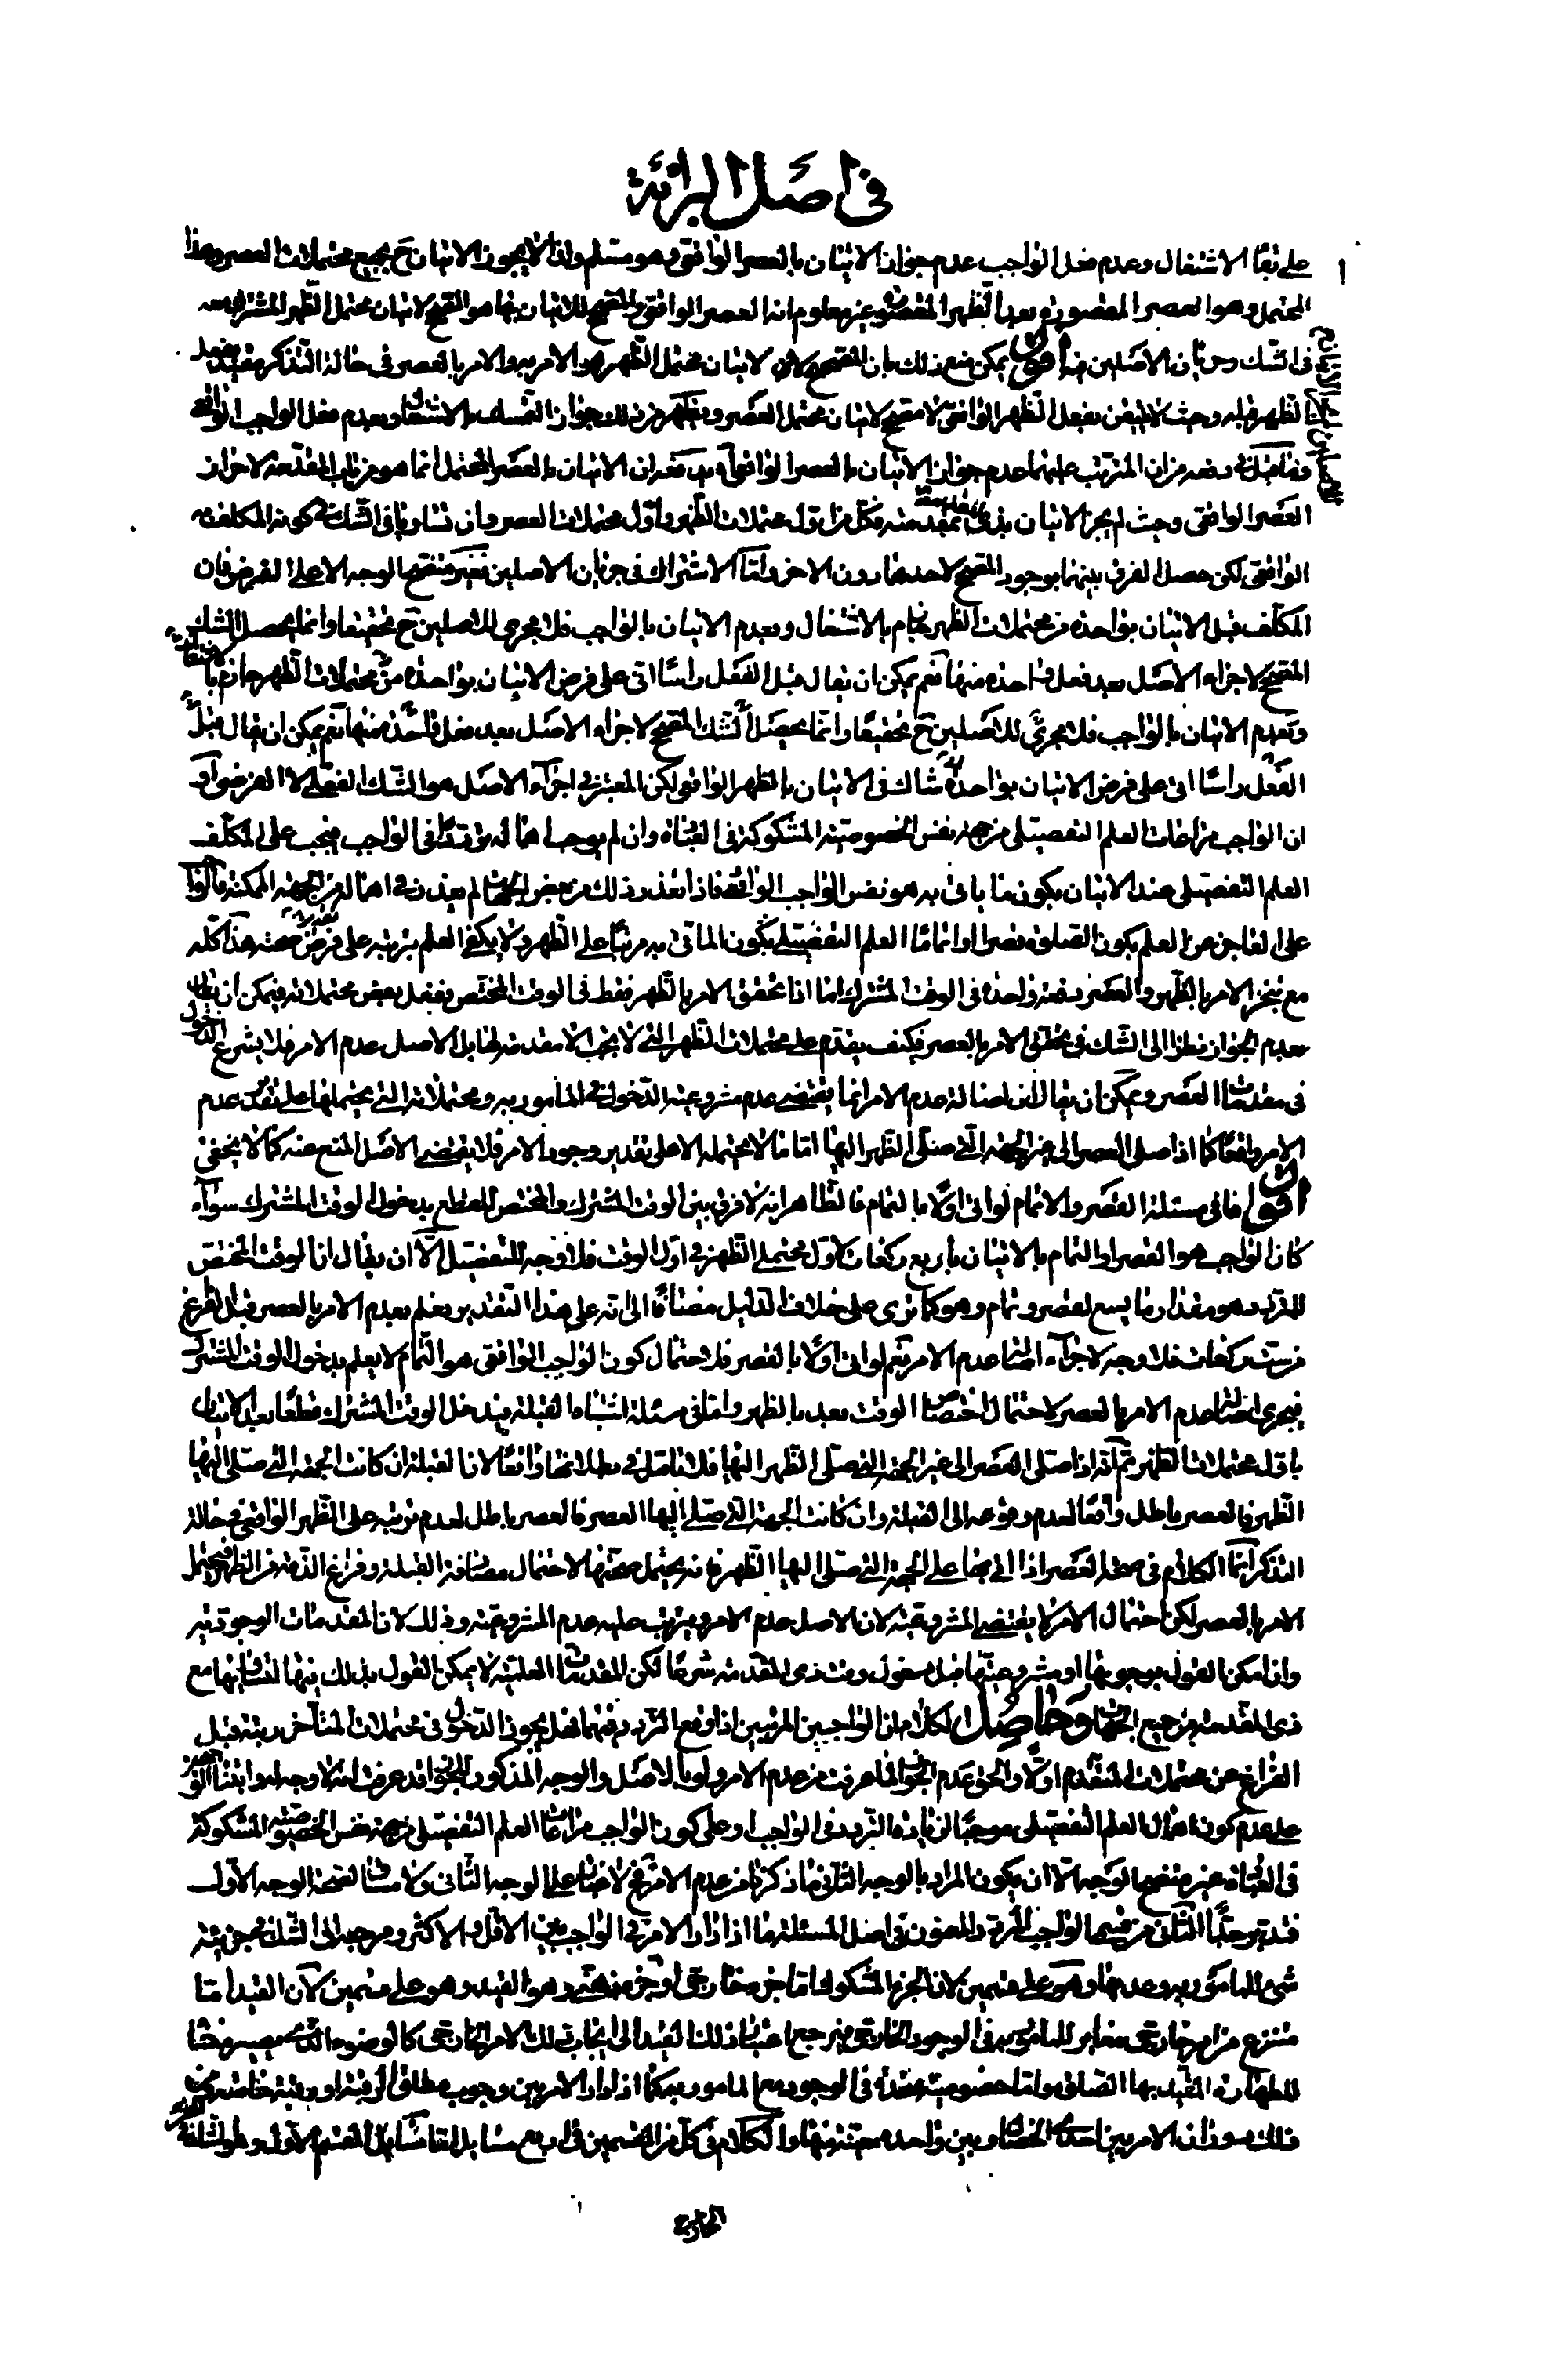 في اصل البرائة
على بقاء الاشتغال وعدم فعل الواجب عدم جواز الاتيان بالعصر الواقعى وهو مسلم ولذا لا يجوز الاتيان ح بجميع محتملات العصر وهذا
المحتمل وهو العصر المقصورة بعد الظهر المقصورة غير معلوم انه العصر الواقعى والمصحح للاتيان بها هو المصحح لاتيان محتمل الظهر المشترك معه
في الشك وجريان الاصلين فيه اقول يمكن منع ذلك بان المصحح لاتيان محتمل الظهر هو الامر به والامر بالعصر في حالة التذكر مقيد بفعل
الظهر قبله وحيث لا يتيقن بفعل الظهر الواقعى لا مصحح لاتيان محتمل العصر ويظهر من ذلك جواز التمسك بالاشتغال وبعدم فعل الواجب الواقعى
من ان المترتب عليهما عدم جواز الاتيان بالعصر الواقعى الاتيان بالعصر المحتمل انما هو من باب المقدمة لاحراز
العصر الواقعى وحيث لم يجز الاتيان بذى المقدمة فكل من اول محتملات الظهر واول محتملات العصر وان تساويا في الشك في كونه المكلف به
الواقعى لكن حصل الفرق بينهما بوجود المصحح لاحدهما دون الاخر واما الاشتراك في جريان الاصلين فغير متضح الوجه الا على الفرض فان
المكلف قبل الاتيان بواحدة من محتملات الظهر عالم بالاشتغال وبعدم الاتيان بالواجب فلا مجرى للاصلين ح تحقيقا وانما يحصل الشك
المصحح لاجراء الاصل بعد فعل واحدة منها نعم يمكن ان يقال قبل الفعل راسا انى على فرض الاتيان بواحدة من محتملات الظهر جازم بالاشتغال
وبعدم الاتيان بالواجب فلا مجرى للاصلين ح تحقيقا وانما يحصل الشك المصحح لاجراء الاصل بعد فعل واحدة منها نعم يمكن ان يقال قبل
الفعل راسا انى على فرض الاتيان بواحدة شاك في الاتيان بالظهر الواقعى لكن المعتبر في اجراء الاصل هو الشك الفعلى لا الفرضى
ان الواجب مراعات العلم التفصيلى من جهة نفس الخصوصية المشكوكة في العبادة وان لم يوجب اهماله ترددا في الواجب فيجب على المكلف
العلم التفصيلى عند الاتيان بكون ما ياتى به هو نفس الواجب الواقعى فاذا تعذر ذلك من بعض الجهات لم يعذر في اهماله من الجهة الممكنة فالواجب
على العاجز عن العلم بكون الصلوة قصرا او تماما العلم التفصيلى بكون الماتى به مرتبا على الظهر ولا يكفى العلم بترتبه على فرض صحته هذا كله
مع تنجز الامر بالظهر والعصر دفعة واحدة في الوقت المشترك اما اذا تحقق الامر بالظهر فقط في الوقت المختص ففعل بعض محتملاته فيمكن ان يقال
بعدم الجواز نظرا الى الشك في تحقق الامر بالعصر فكيف يقدم على محتملات الظهر التى لا يجب الا مقدمة لها بل الاصل عدم الامر فلا يشرع الدخول
في مقدمات العصر ويمكن ان يقال ان اصالة عدم الامر انما يقتضى عدم مشروعية الدخول في المامور به ومحتملاته التى يحتملها على تقدير عدم
الامر واقعا كما اذا صلى العصر الى غير الجهة التى صلى الظهر اليها اما ما لا يحتمله الا على تقدير وجود الامر فلا يقتضى الاصل المنع عنه كما لا يخفى
اقول اما في مسئلة القصر والاتمام لو اتى اولا بالتمام فالظاهر انه لا فرق بين الوقت المشترك والمختص للقطع بدخول الوقت المشترك سواء
كان الواجب هو القصر او التمام بالاتيان باربع ركعات لاول محتملى الظهر في اول الوقت فلا وجه للتفصيل الا ان يقال ان الوقت المختص
للمردد هو مقدار ما يسع لقصر وتمام وهو كما ترى على خلاف الدليل مضافا الى انه على هذا التقدير يعلم بعدم الامر بالعصر قبل الفراغ
من ست ركعات فلا وجه لاجراء اصالة عدم الامر نعم لو اتى اولا بالقصر فلاحتمال كون الواجب الواقعى هو التمام لا يعلم بدخول الوقت المشترك
فيجرى اصالة عدم الامر بالعصر لاحتمال اختصاص الوقت بعد بالظهر واما في مسئلة اشتباه القبلة فيدخل الوقت المشترك قطعا بعد الاتيان
باول محتملات الظهر ثم انه اذا صلى العصر الى غير الجهة التى صلى الظهر اليها فلا تامل في بطلانها واقعا لان القبلة ان كانت الجهة التى صلى اليها
الظهر فالعصر باطل واقعا لعدم وقوعه الى القبلة وان كانت الجهة التى صلى اليها العصر فالعصر باطل لعدم ترتبه على الظهر الواقعى في حالة
التذكر انما الكلام في صحة العصر اذا اتى بها على الجهة التى صلى اليها الظهر فانه يحتمل صحتها لاحتمال مصادفة القبلة وفراغ الذمة من الظهر فيحتمل
الامر بالعصر لكن احتمال الامر لا يقتضى المشروعية لان الاصل عدم الامر ويترتب عليه عدم المشروعية وذلك لان المقدمات الوجودية
وان امكن القول بوجوبها او مشروعيتها قبل دخول وقت ذى المقدمة شرعا لكن المقدمات العلمية لا يمكن القول بذلك فيها لتساويها مع
ذى المقدمة من جميع الجهات وحاصل الكلام ان الواجبين المرتبين اذا وقع التردد فيهما فهل يجوز الدخول في محتملات المتاخر رتبة قبل
الفراغ عن محتملات المتقدم اولا والحق عدم الجواز لما عرفت من عدم الامر ولو بالاصل والوجه المذكور للجواز قد عرفت انه لا وجه له وابتناء القولين
على عدم كون اهمال العلم التفصيلى موجبا لزيادة التردد في الواجب او على كون الواجب مراعات العلم التفصيلى من جهة نفس الخصوصية المشكوكة
في العبادة غير متضح الوجه الا ان يكون المراد بالوجه الثانى ما ذكرنا من عدم الامر على الوجه الثانى ولا لصحة الوجه الاول
فتدبر جيدا الثانى من قسمى الواجب المردد والمعنون في اصل المسئلة ما اذا دار الامر في الواجب بين الاقل والاكثر ومرجعه الى الشك في جزئية
شىء للمامور به وعدمها وهو على قسمين لان الجزء المشكوك اما جزء خارجى او جزء ذهنى وهو القيد وهو على قسمين لان القيد اما
منتزع من امر خارجى مغاير للمامور به في الوجود الخارجى فيرجع اعتبار ذلك القيد الى ايجاب ذلك الامر الخارجى كالوضوء الذى يصير منشا
للطهارة المقيد بها الصلوة واما خصوصية متحدة في الوجود مع المامور به كما اذا دار الامر بين وجوب مطلق الرقبة او رقبة خاصة ومن
ذلك دوران الامر بين احدى الخصال وبين واحدة معينة منها والكلام في كل من القسمين في اربع مسايل اما مسايل القسم الاول وهو الشك في الجزء
الخارجى